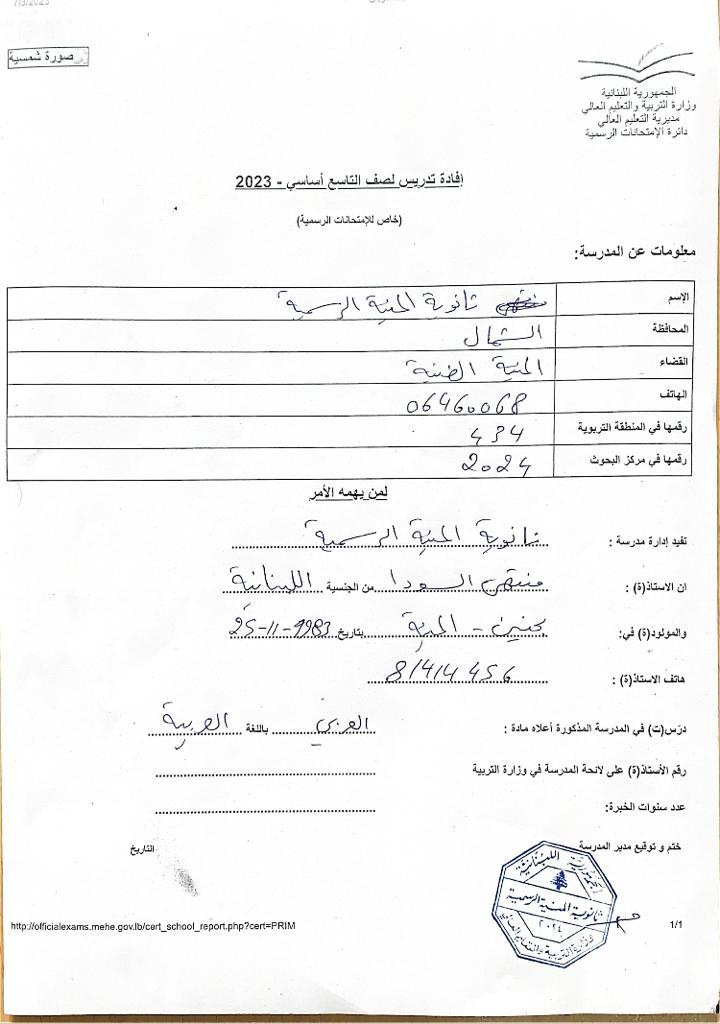 7/3/2023
صورة شمسية
الجمهورية اللبنانية
وزارة التربية والتعليم العالي
مديرية التعليم العالي
دائرة الإمتحانات الرسمية
إفادة تدريس لصف التاسع أساسي - 2023
(خاص للإمتحانات الرسمية)
معلومات عن المدرسة:
الإسم ثانوية المنية الرسمية
المحافظة الشمال
القضاء المنية الضنية
الهاتف 06460068
رقمها في المنطقة التربوية 434
رقمها في مركز البحوث 2024
لمن يهمه الأمر
تفيد إدارة مدرسة : ثانوية المنية الرسمية
ان الاستاذ(ة) : منتهى السودا من الجنسية اللبنانية
والمولود(ة) في: بحنين - المنية بتاريخ 25-11-1983
هاتف الاستاذ(ة) : 81414456
درّس(ت) في المدرسة المذكورة أعلاه مادة : العربي باللغة العربية
رقم الأستاذ(ة) على لائحة المدرسة في وزارة التربية
عدد سنوات الخبرة:
ختم و توقيع مدير المدرسة التاريخ
الجمهورية اللبنانية
ثانوية المنية الرسمية
٢٠٢٤
وزارة التربية والتعليم العالي
http://officialexams.mehe.gov.lb/cert_school_report.php?cert=PRIM 1/1